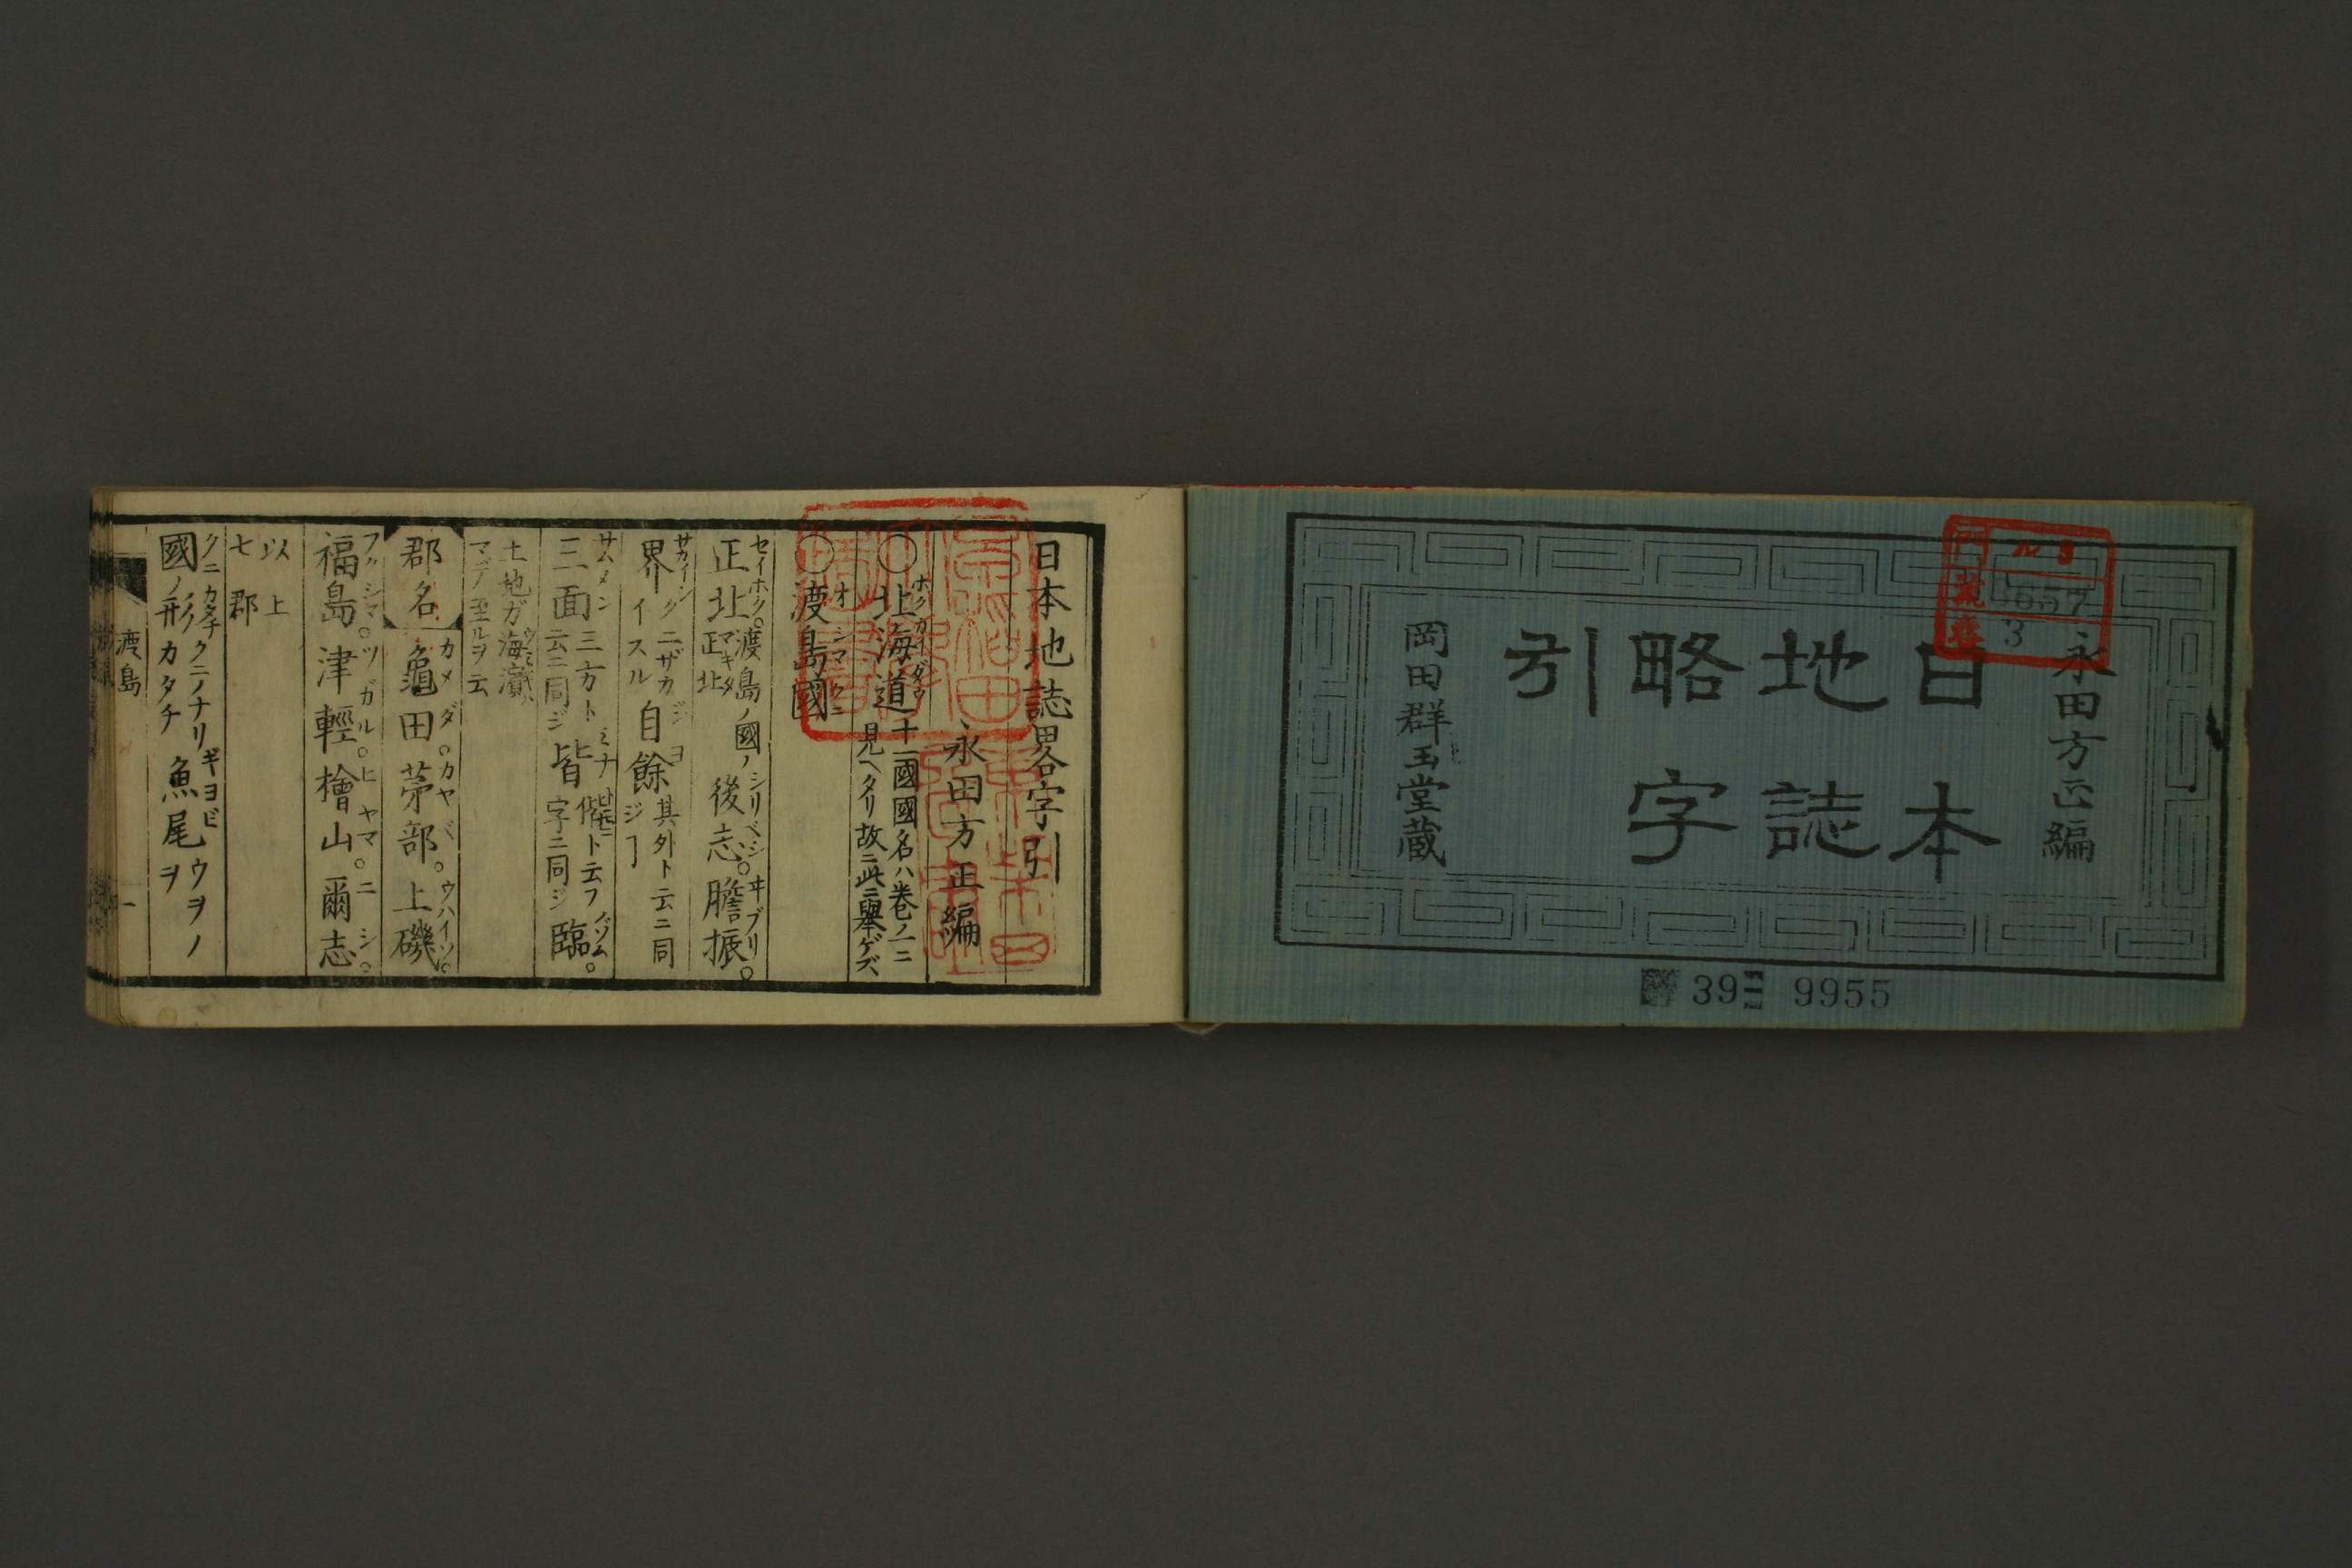 永田方正編
日本
地誌
略字
引
岡田群玉堂蔵
3
39 9955
日本地誌畧字引
永田方正編
〇北海道十一國國名ハ巻ノ一ニ
見ヘタリ故ニ此ニ擧ゲズ
ホクカイダウ
〇渡島國
オシマクニ
正北渡島ノ國ノ後志。膽振。
セイホク。マキタ正北シリベシ。ヰブリ。
界クニザカイスル自餘其外ト云ニ同ジ
サカイシ
三面三方ト云ニ同ジ皆偕ト云フ字ニ同ジ臨。
サムメンミナノゾム
土地ガ海濱
マデ至ルヲ云
郡名龜田茅部。上磯
カメダ。カヤベ。ウハイソ。
福島津輕檜山爾志
フクシマ。ツガル。ヒヤマ。ニシ。
以上
七郡
國ノ形カタチ魚尾ヲ
クニカタチクニノナリギヨビウヲノ
渡島
一